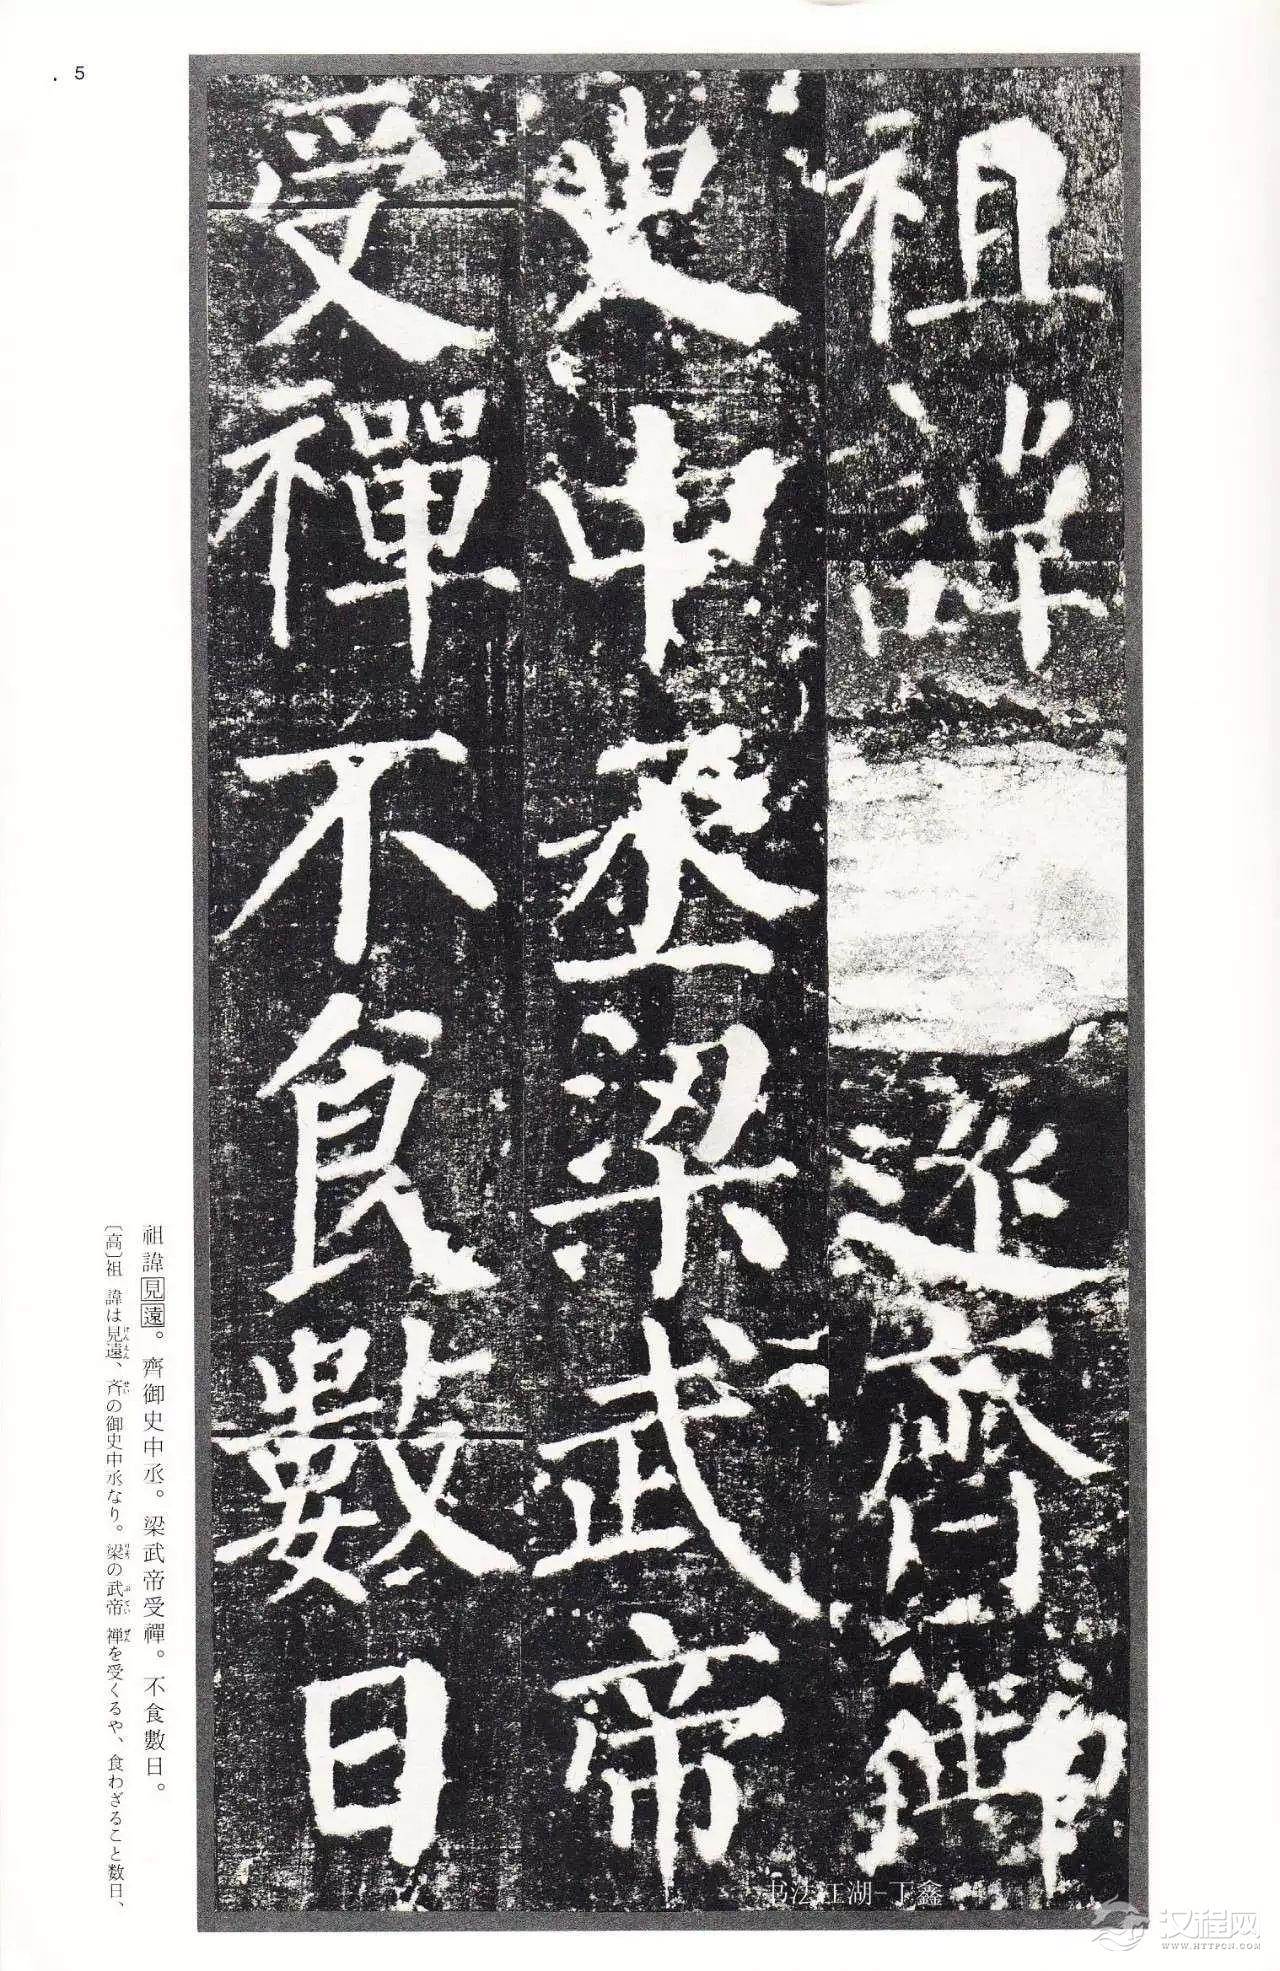 5
祖諱齊御
史中丞梁武帝
受禪不食數日
祖諱見遠。齊御史中丞。梁武帝受禪。不食數日。
〔高〕祖 諱は見遠、斉の御史中丞なり。梁の武帝 禅を受くるや、食わざること数日、
けんえん せい りょう ぶてい ぜん
书法江湖-丁鑫
汉程网
WWW.HTTPCN.COM